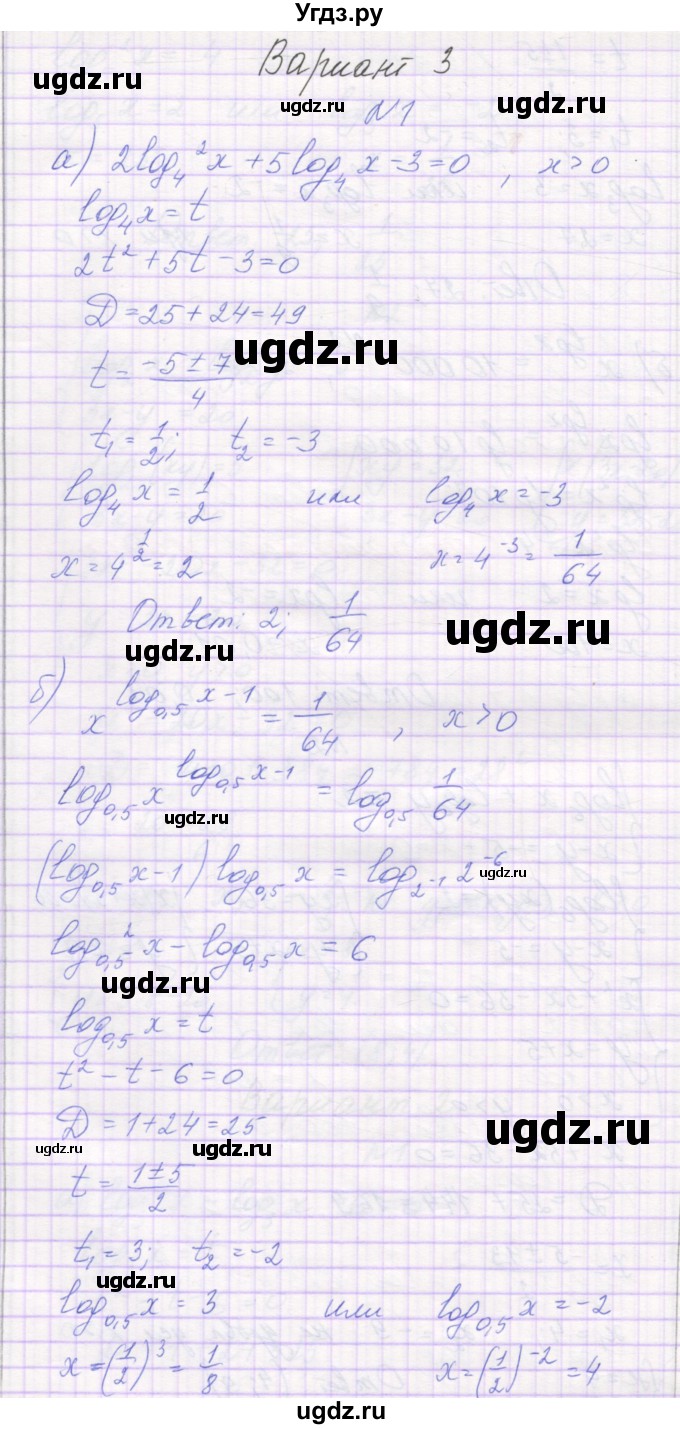 Угдз.ру
Вариант 3
ugdz.ru ugdz.ru ugdz.ru
№1
а) 2log₄²x + 5log₄x - 3 = 0 , x > 0
log₄x = t
2t² + 5t - 3 = 0
D = 25 + 24 = 49
ugdz.ru
t = (-5 ± 7)/4
t₁ = 1/2; t₂ = -3
log₄x = 1/2 или log₄x = -3
x = 4^(1/2) = 2 x = 4⁻³ = 1/64
Ответ: 2; 1/64
ugdz.ru ugdz.ru
б) x^(log₀,₅x - 1) = 1/64 , x > 0
log₀,₅x^(log₀,₅x - 1) = log₀,₅ 1/64
ugdz.ru
(log₀,₅x - 1) log₀,₅x = log₂₋₁ 2⁻⁶
ugdz.ru
log₀,₅²x - log₀,₅x = 6
ugdz.ru
log₀,₅x = t
t² - t - 6 = 0
D = 1 + 24 = 25
ugdz.ru ugdz.ru ugdz.ru
t = (1 ± 5)/2
t₁ = 3; t₂ = -2
ugdz.ru
log₀,₅x = 3 или log₀,₅x = -2
x = (1/2)³ = 1/8 x = (1/2)⁻² = 4
ugdz.ru